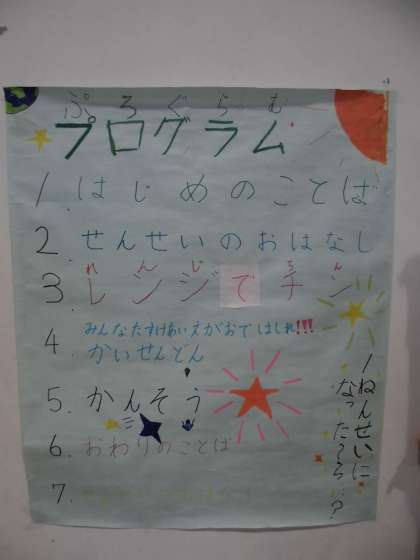 ぷろぐらむ
プログラム
1. はじめのことば
2. せんせいのおはなし
れんじ ちん
3. レンジでチン
4. みんなたすけあいえがおではしれ!!!
かいせんどん
5. かんそう
6. おわりのことば
7.
1ねんせいに
なったら…?